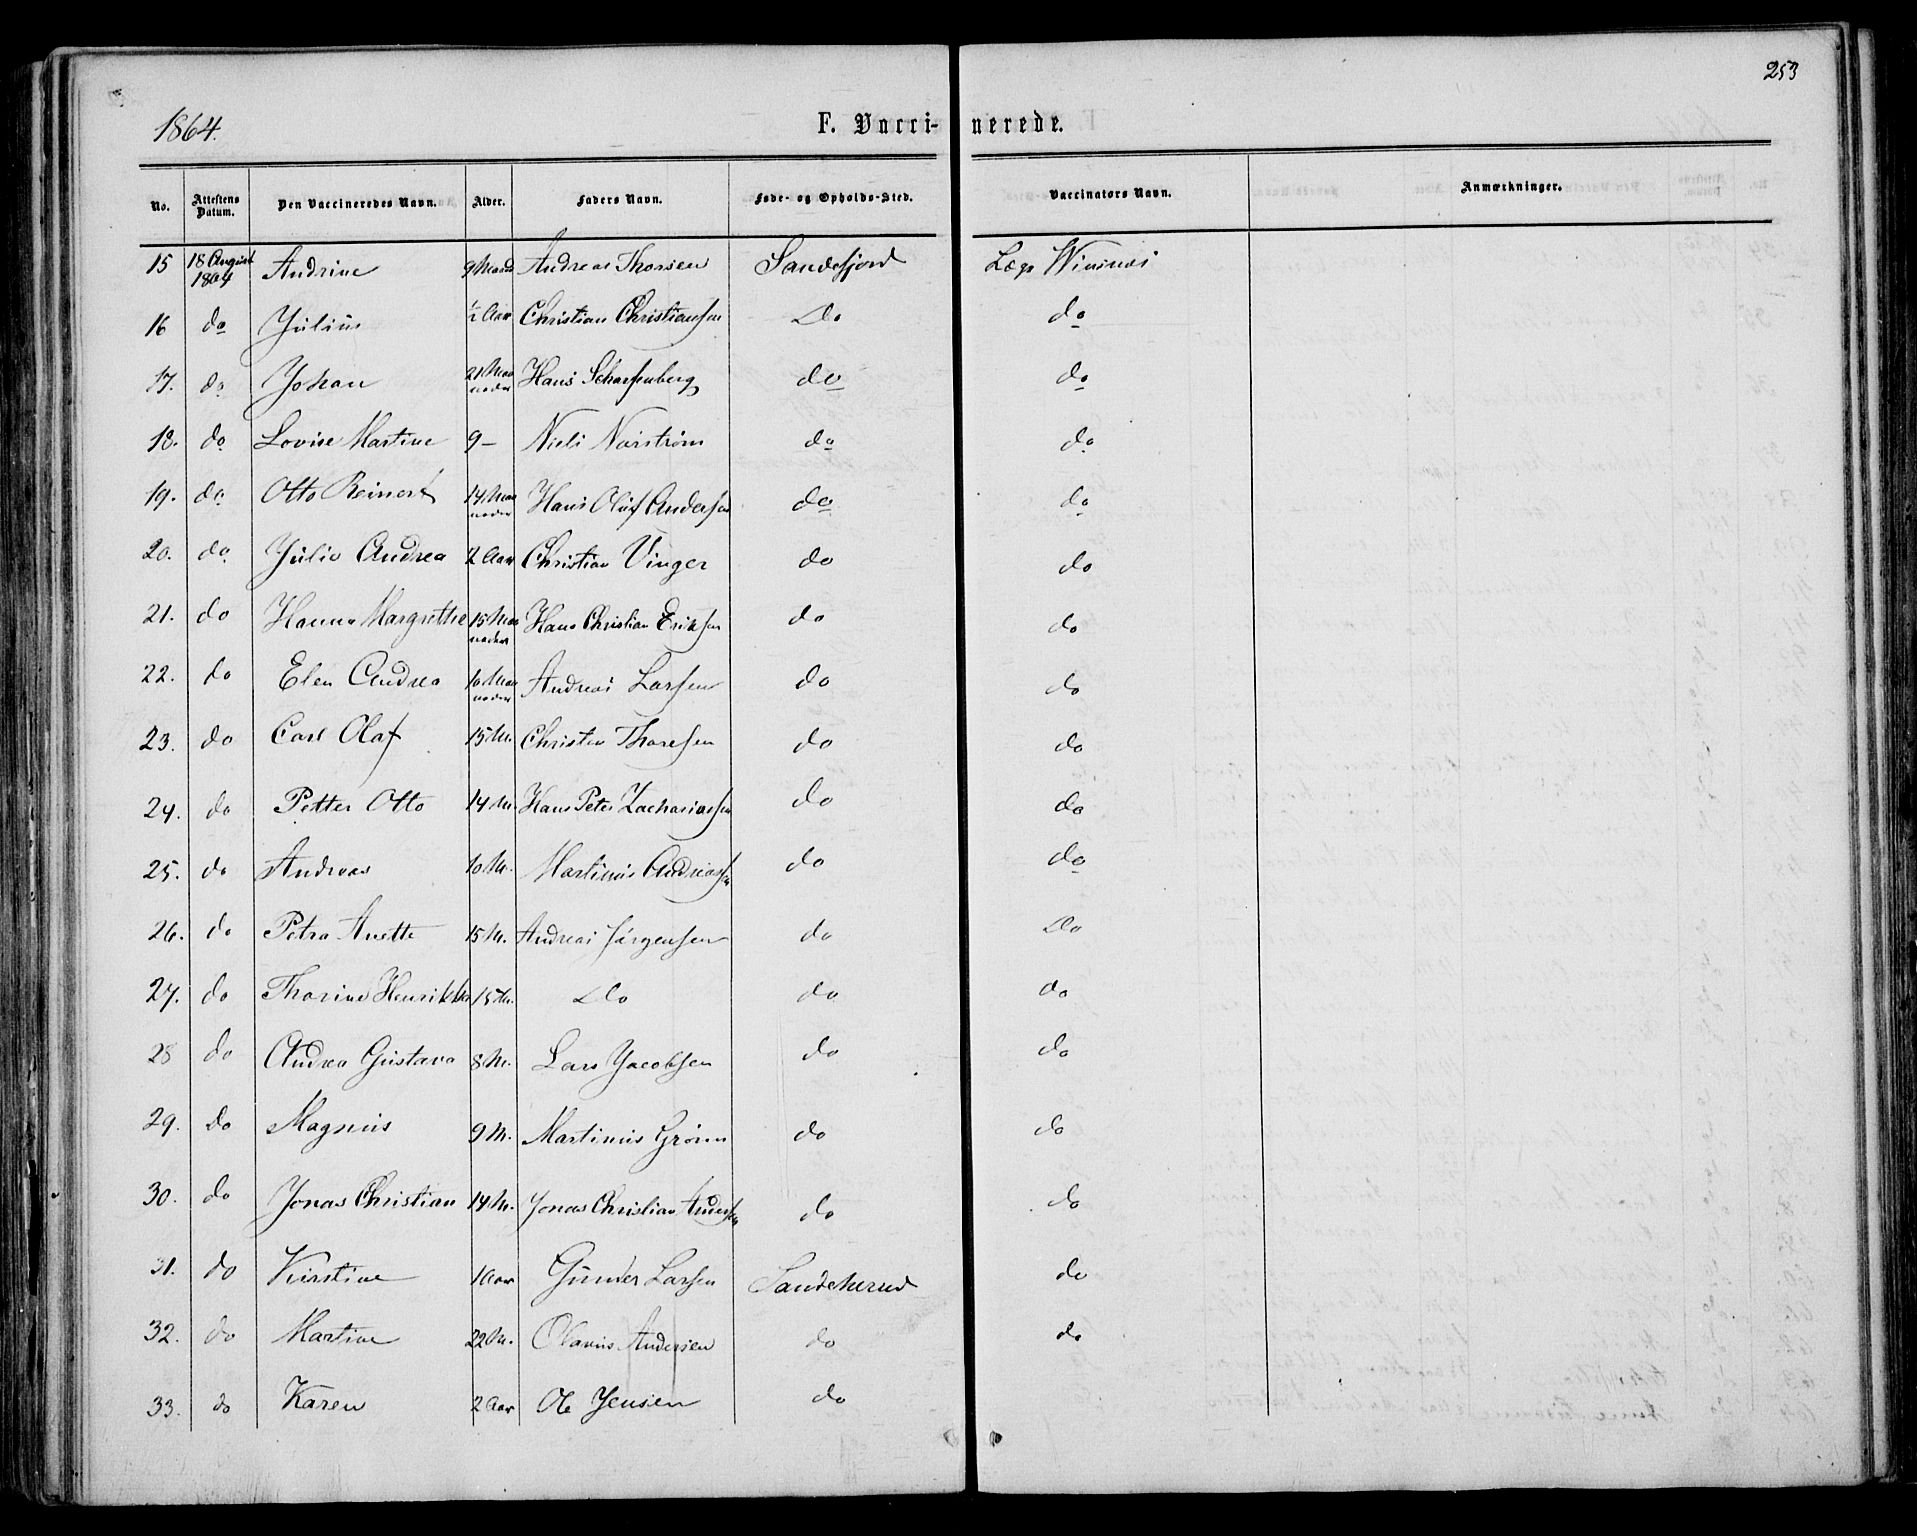 253
1864.
F. Vaccinerede.
No. Attestens Datum. Den Vaccineredes Navn. Alder. Faders Navn. Føde- og Opholds-Sted. Vaccinators Navn. Anmærkninger.
15 18 August 1864 Andrine 9 Maand Andreas Thorsen Sandefjord Læge
16 do Julius ½ Aar Christian Christiansen Do do
17. do Johan 21 Maaneder Hans Scharfenberg do do
18. do Lovise Martine 9 – Niels Norström do do
19. do Otto Reinert 14 Maaneder Hans Oluf Andersen do do
20. do Julie Andrea 2 Aar Christian Vinger do do
21. do Hanna Margrethe 15 Maaneder Hans Christian Eriksen do do
22. do Elen Andrea 10 Maaneder Andreas Larsen do do
23. do Carl Olaf 15 M. Christen Thoresen do do
24. do Petter Otto 14 M. Hans Peter Zachariassen do do
25. do Andreas 10 M. Martinus Andreassen do do
26. do Petra Anette 15 M. Andreas Jörgensen do Do
27. do Thorine Henrikke 15 M. Do do do
28 do Andrea Gustava 8 M. Lars Jacobsen do do
29. do Magnus 9 M. Martinus Grönn do do
30. do Jonas Christian 14 M. Jonas Christian Andersen do do
31. do Kirstine 1 Aar Gunder Larsen Sandeherred do
32. do Martine 22 M. Olavus Andersen do do
33. do Karen 2 Aar Ole Jensen do